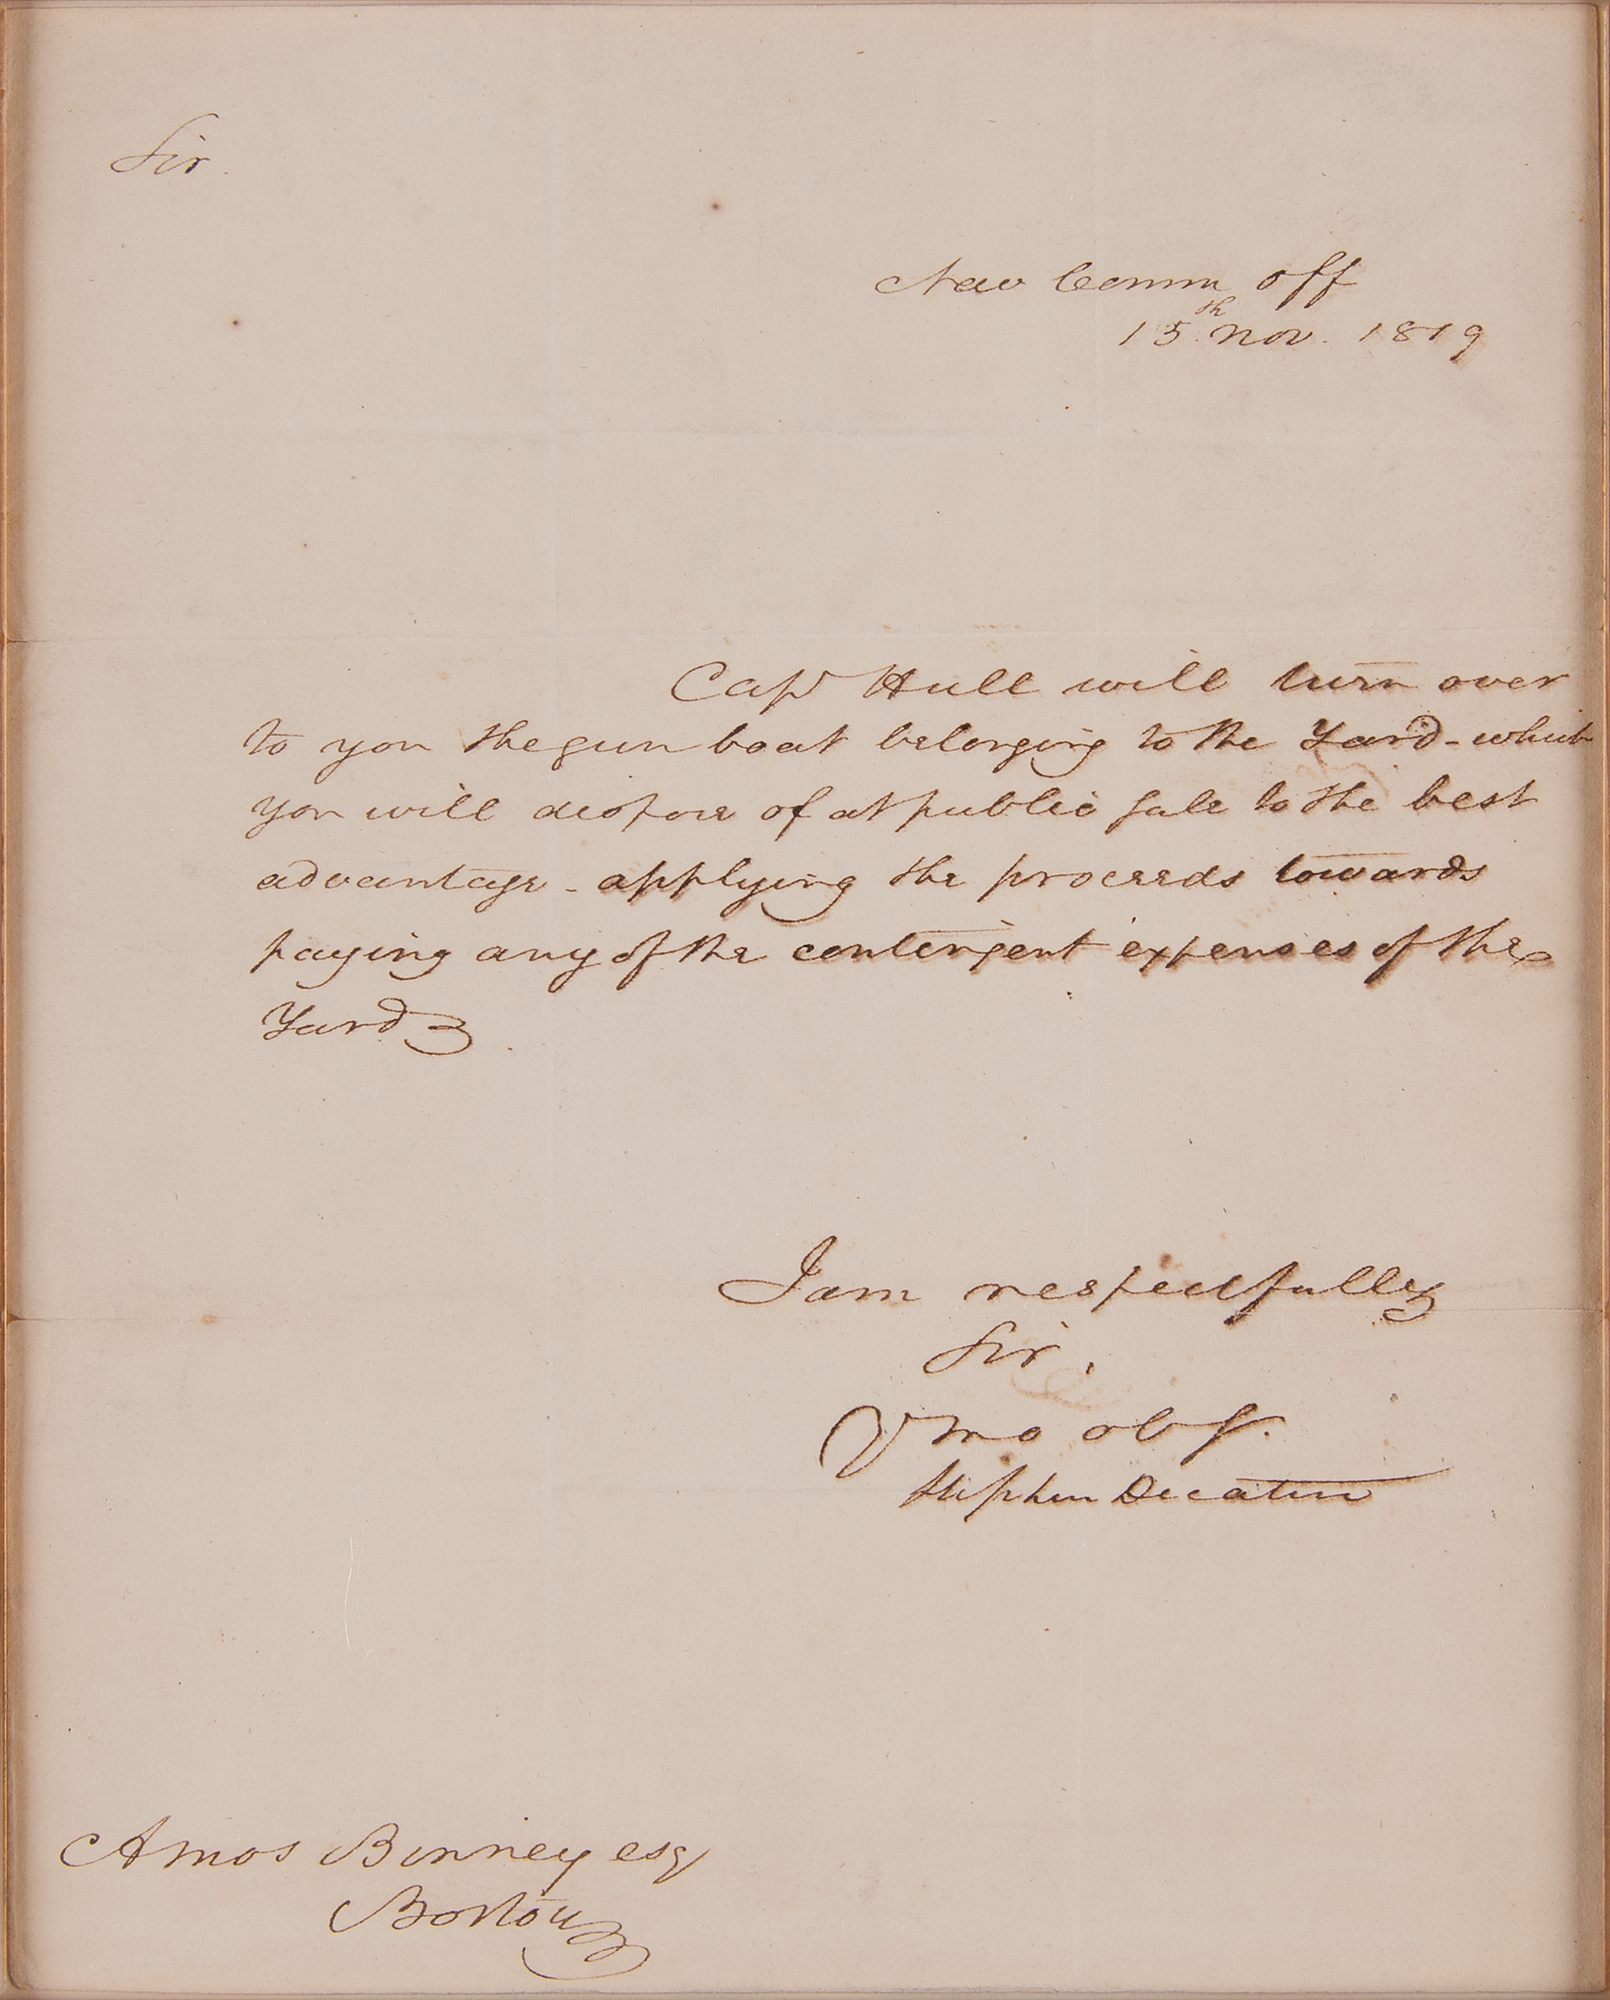 Sir.
Nav Comm off
15th Nov. 1819
Capt Hull will turn over
to you the gun boat belonging to the Yard - which
you will dispose of at public sale to the best
advantage - applying the proceeds towards
paying any of the contengent expenses of the
Yard
I am respectfully
Sir,
Y mo obt.
Stephen Decatur
Amos Binney esq
Boston